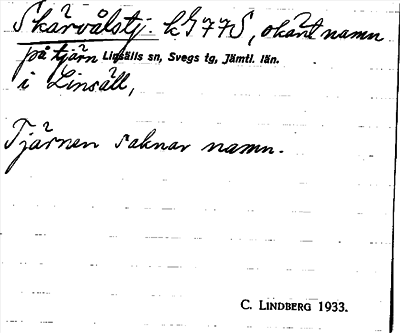 Skärvålstj. k G 77 S, okänt namn
på tjärn Linsälls sn, Svegs tg, Jämtl. län.
i Linsäll,
Tjärnen saknar namn.
C. LINDBERG 1933.